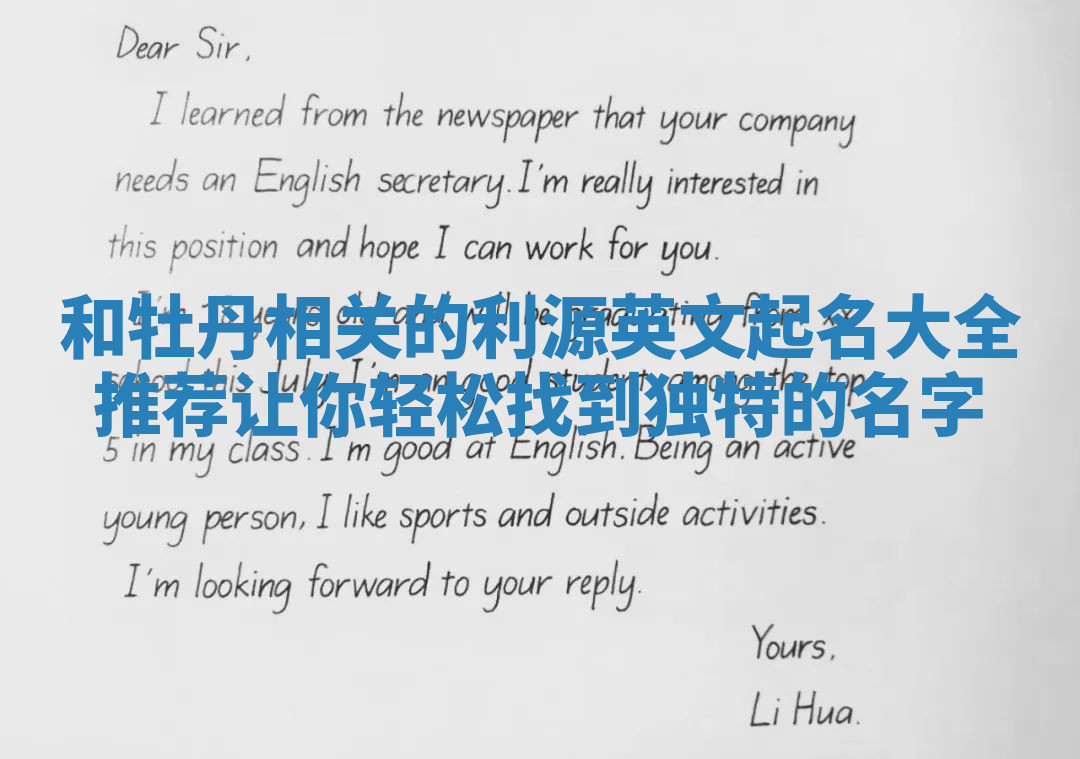 Dear Sir,
I learned from the newspaper that your company
needs an English secretary. I'm really interested in
this position and hope I can work for you.
I'm 18 years old and will be graduating from xx
和牡丹相关的利源英文起名大全
school this July. I'm an good student, among the top
推荐让你轻松找到独特的名字
5 in my class. I'm good at English. Being an active
young person, I like sports and outside activities.
I'm looking forward to your reply.
Yours,
Li Hua.